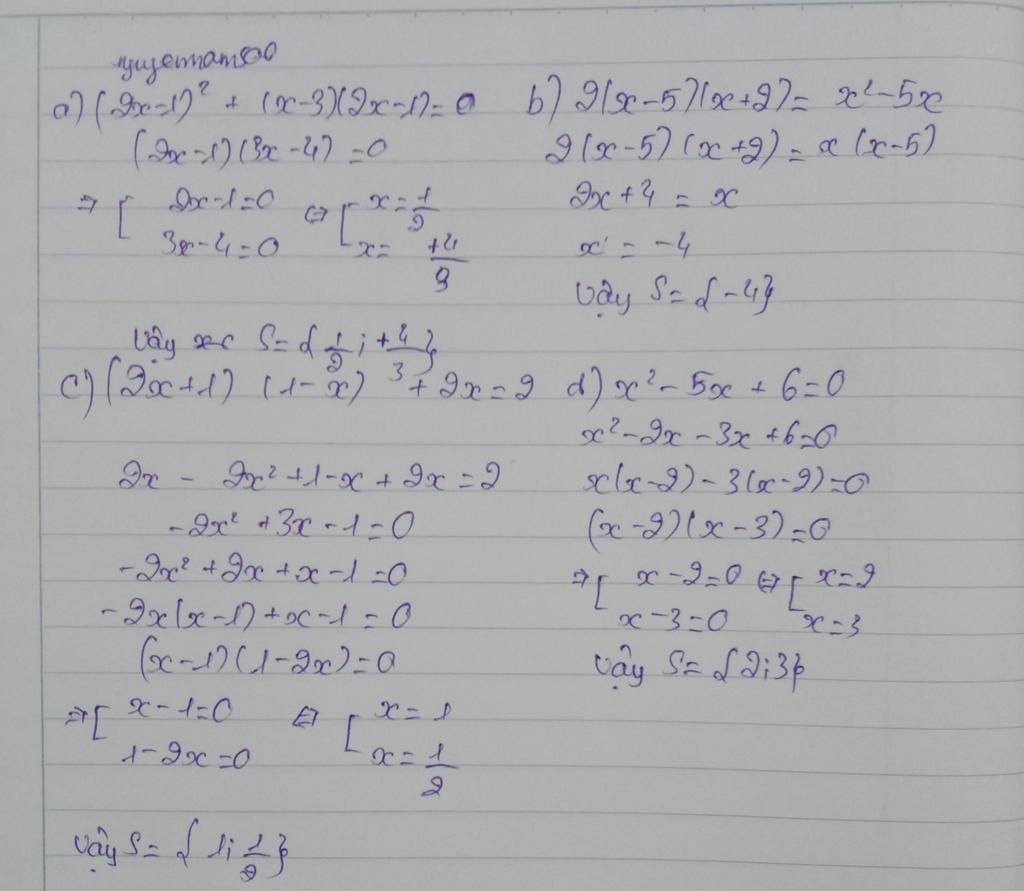 nguyetnam500
a) (2x-1)² + (x-3)(2x-1)=0
(2x-1)(3x-4)=0
⇒ [ 2x-1=0 ⇔ [ x=1/2
3x-4=0 x= +4/3
Vậy S={1/2; +4/3}
b) 2(x-5)(x+2)= x²-5x
2(x-5)(x+2)=x(x-5)
2x+4 = x
x = -4
Vậy S={-4}
c) (2x+1) (1-x) +2x=2
2x - 2x²+1-x+2x=2
-2x² +3x-1=0
-2x²+2x+x-1=0
-2x(x-1)+x-1=0
(x-1)(1-2x)=0
⇒ [ x-1=0 ⇔ [ x=1
1-2x=0 x=1/2
Vậy S={1; 1/2}
d) x²-5x+6=0
x²-2x-3x+6=0
x(x-2)-3(x-2)=0
(x-2)(x-3)=0
⇒ [ x-2=0 ⇔ [ x=2
x-3=0 x=3
Vậy S={2;3}